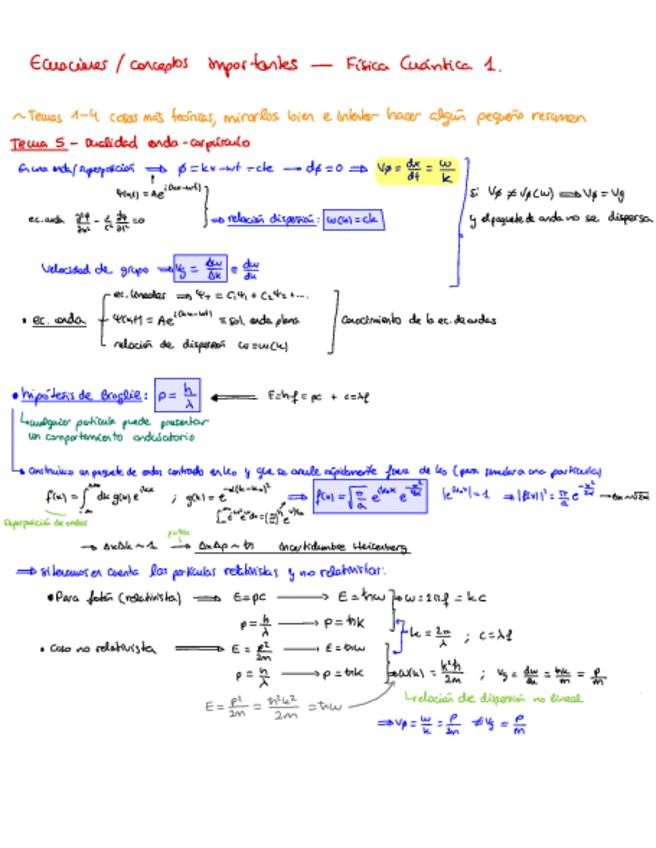 Ecuaciones / conceptos importantes — Física Cuántica 1.
~ Temas 1-4 cosas más teóricas, mirarlos bien e intentar hacer algún pequeño resumen
Tema 5 - Dualidad onda-corpúsculo
En una onda/superposición ⟹ φ = kx - ωt = cte → dφ = 0 ⟹ Vφ = dx/dt = ω/k
Ψ(x,t) = A e^{i(kx-ωt)}
si Vφ ≠ Vφ(ω) ⟹ Vφ = Vg
ec. onda ∂²φ/∂x² - 1/c² ∂²φ/∂t² = 0 ⟹ relación dispersión: ω(k) = ck
y el paquete de onda no se dispersa
Velocidad de grupo ⟹ Vg = Δω/Δk ≡ dω/dk
ec. lineales ⟹ Ψ_T = C₁Ψ₁ + C₂Ψ₂ + ...
• ec. onda Ψ(x,t) = A e^{i(kx-ωt)} ≡ sol. onda plana
Conocimiento de la ec. de ondas
relación de dispersión ω = ω(k)
• hipótesis de Broglie: p = h/λ ⟵ E = hf = pc + c = λf
cualquier partícula puede presentar
un comportamiento ondulatorio
Construimos un paquete de ondas centrado en k₀ y que se anule rápidamente fuera de k₀ (para simular a una partícula)
f(x) = ∫ dk g(k) e^{ikx} ; g(k) = e^{-α(k-k₀)²} ⟹ f(x) = √(π/α) e^{ik₀x} e^{-x²/4α} |e^{ik₀x}| = 1 ⟹ |f(x)|² = π/α e^{-x²/2α}
superposición de ondas
→ ΔxΔk ~ 1 → ΔxΔp ~ ħ Incertidumbre Heisenberg
p = ħk
⟹ si tenemos en cuenta las partículas relativistas y no relativistas:
• Para fotón (relativista) ⟹ E = pc → E = ħω ω = 2πf = kc
p = h/λ → p = ħk
k = 2π/λ ; c = λf
• Caso no relativista ⟹ E = p²/2m → E = ħω
p = h/λ → p = ħk ω(k) = k²ħ/2m ; Vg = dω/dk = ħk/m = p/m
E = p²/2m = ħ²k²/2m = ħω
relación de dispersión no lineal
⟹ Vφ = ω/k = p/2m ≠ Vg = p/m